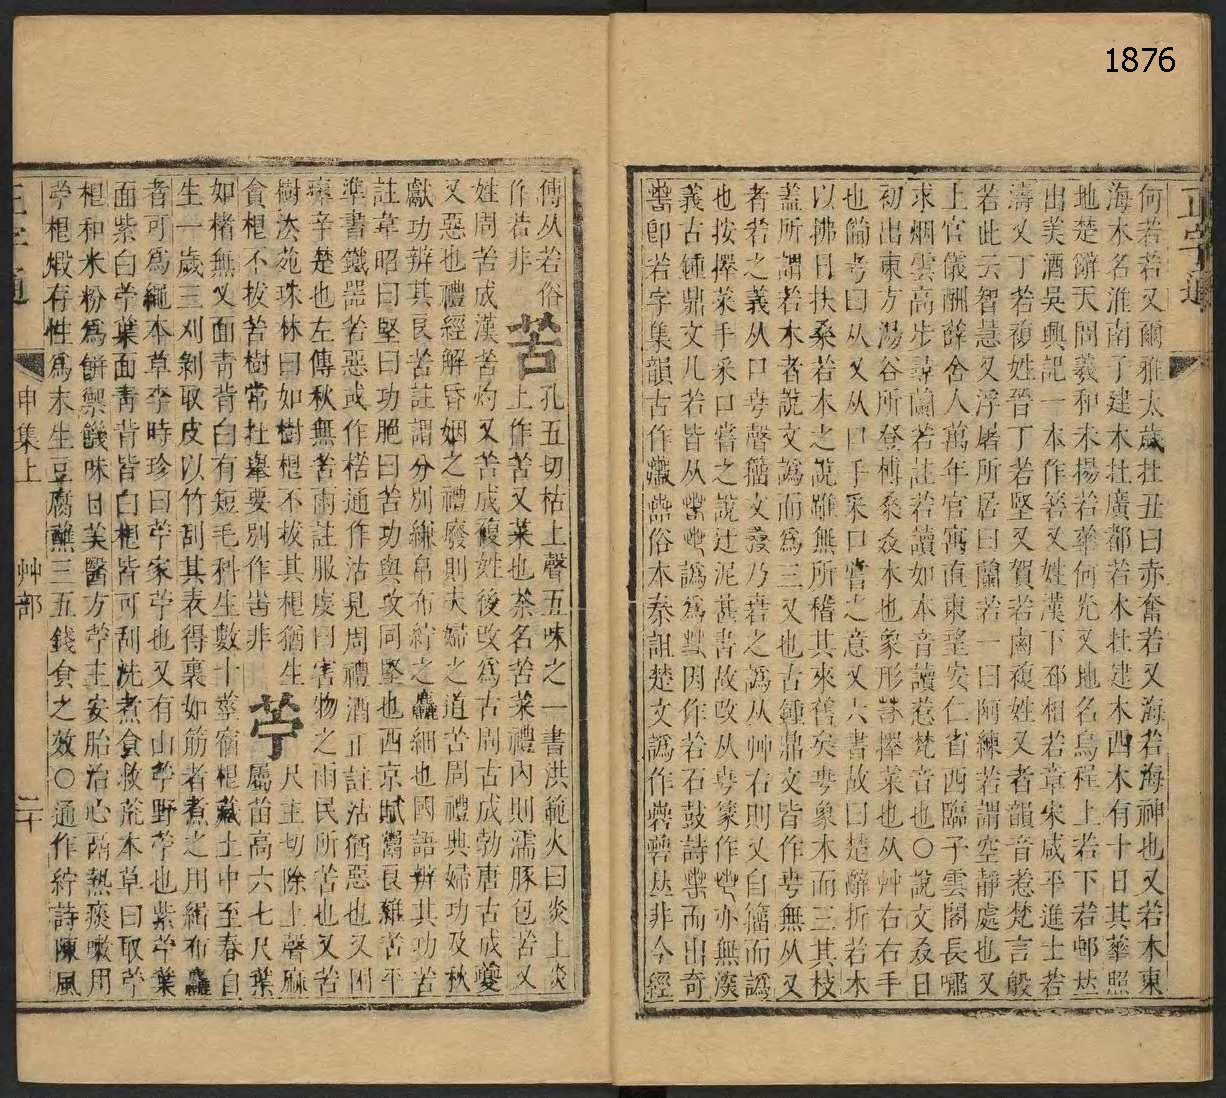 1876
正字通
何若若又爾雅太歲在丑曰赤奮若又海若海神也又若木東
海水名淮南子建木在廣都若木在建木西木有十日其華照
地楚辭天問羲和未揚若華何光又地名烏程上若下若邨𠀤
出美酒吳興記一本作箬又姓漢下邳相若章宋咸平進士若
濤又丁若複姓晉丁若堅又賀若鹵複姓又者韻音惹梵言般
若此云智慧又浮屠所居曰蘭若一曰阿練若謂空靜處也又
上官儀酬薛舍人萬年官寓直東望安仁省西臨子雲閣長嘯
求烟雲高步尋蘭若註若讀如本音讀惹梵音也○說文叒日
初出東方湯谷所登榑桑叒木也象形 擇菜也从艸右右手
也 考曰从又从口手采口嘗之意又六書故曰楚辭折若木
以拂日扶桑若木之說雖無所稽其來舊矣 象木而三其枝
蓋所謂若木者說文譌而爲三又也古鍾鼎文皆作 無从又
者若之義从口 聲籀文 乃 若之譌从艸右則又自籀而譌
也按擇菜手采口嘗之說迂泥甚書故改从 篆作 亦無渶
義古鍾鼎文凡若皆从 譌爲 因作若石鼓詩 而出奇
卽若字集韻古作 俗本秦詛楚文譌作 𠀤非今經
傳从若俗
作若非 苦 孔五切枯上聲五味之一書洪範火曰炎上炎
上作苦又菜也荼名苦菜禮內則濡豚包苦又
姓周苦成漢苦灼又苦成複姓後改爲古周古成勃唐古成夔
又惡也禮經解昏姻之禮廢則夫婦之道苦周禮典婦功及秋
獻功辨其良苦註謂分別縑帛布紵之麤細也國語辨其功苦
註韋昭曰堅曰功脆曰苦功與攻同堅也西京賦鬻良雜苦平
準書鐵器苦惡或作楛通作沽見周禮酒正註沽猶惡也又困
瘁辛楚也左傳秋無苦雨註服虔曰害物之雨民所苦也又苦
樹法苑珠林曰如樹根不拔其根猶生
貪根不拔苦樹常在舉要別作 非 苧 尺主切除上聲麻
屬苗高六七尺葉
如楮無叉面靑背白有短毛科生數十莖宿根藏土中至春自
生一歲三刈剝取皮以竹刮其表得裏如筋者煮之用緝布麤
者可爲繩本草李時珍曰苧家苧也又有山苧野苧也紫苧葉
面紫白苧葉面靑背皆白根皆可刮洗煮食救荒本草曰取苧
根和米粉爲餠禦饑味甘美醫方苧主安胎治心膈熱痰嗽用
苧根煅存性爲末生豆腐蘸三五錢食之效○通作紵詩陳風
正字通 申集上 艸部 二十